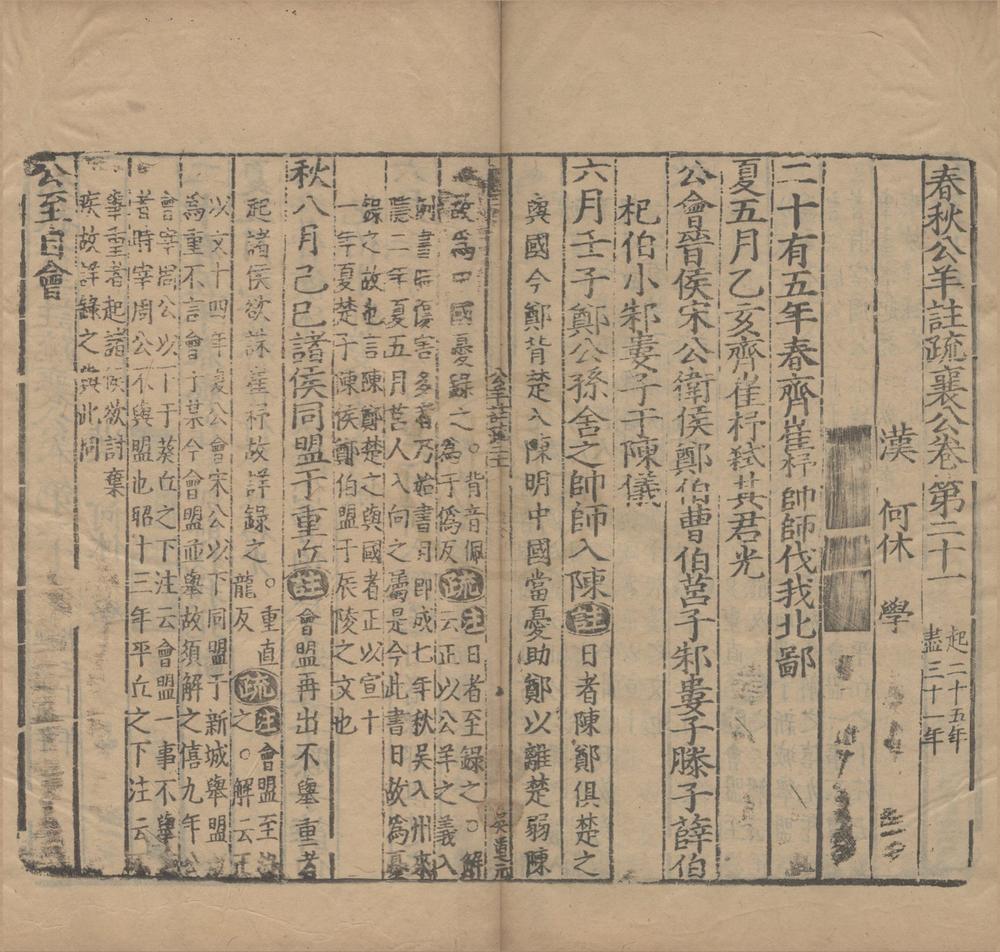 春秋公羊註疏襄公卷第二十一 起二十五年
盡三十一年
漢 何休 學
二十有五年春齊崔杼帥師伐我北鄙
夏五月乙亥齊崔杼弒其君光
公會晉侯宋公衛侯鄭伯曹伯莒子邾婁子滕子薛伯
杞伯小邾婁子于陳儀
六月壬子鄭公孫舍之帥師入陳註日者陳鄭俱楚之
與國今鄭背楚入陳明中國當憂助鄭以離楚弱陳
公羊註疏
吳道元
故為中國憂錄之。背音佩
為于偽反
疏注日者至錄之。解
云正以公羊之義入
例書時傷害多者乃始書月即成七年秋吳入州來
隱二年夏五月莒人入向之屬是今此書日故為憂
錄之故也言陳鄭楚之與國者正以宣十
一年夏楚子陳侯鄭伯盟于辰陵之文也
秋八月己巳諸侯同盟于重丘註會盟再出不舉重者
起諸侯欲誅崔杼故詳錄之。重直
龍反
疏注會盟至錄
之。解云正
以文十四年夏公會宋公以下同盟于新城舉盟
為重不言會于某今會盟並舉故須解之僖九年公
會宰周公以下于葵丘之下注云會盟一事不舉重
者時宰周公不與盟也昭十三年平丘之下注云
舉重者起諸侯欲討棄
疾故詳錄之與此同
公至自會